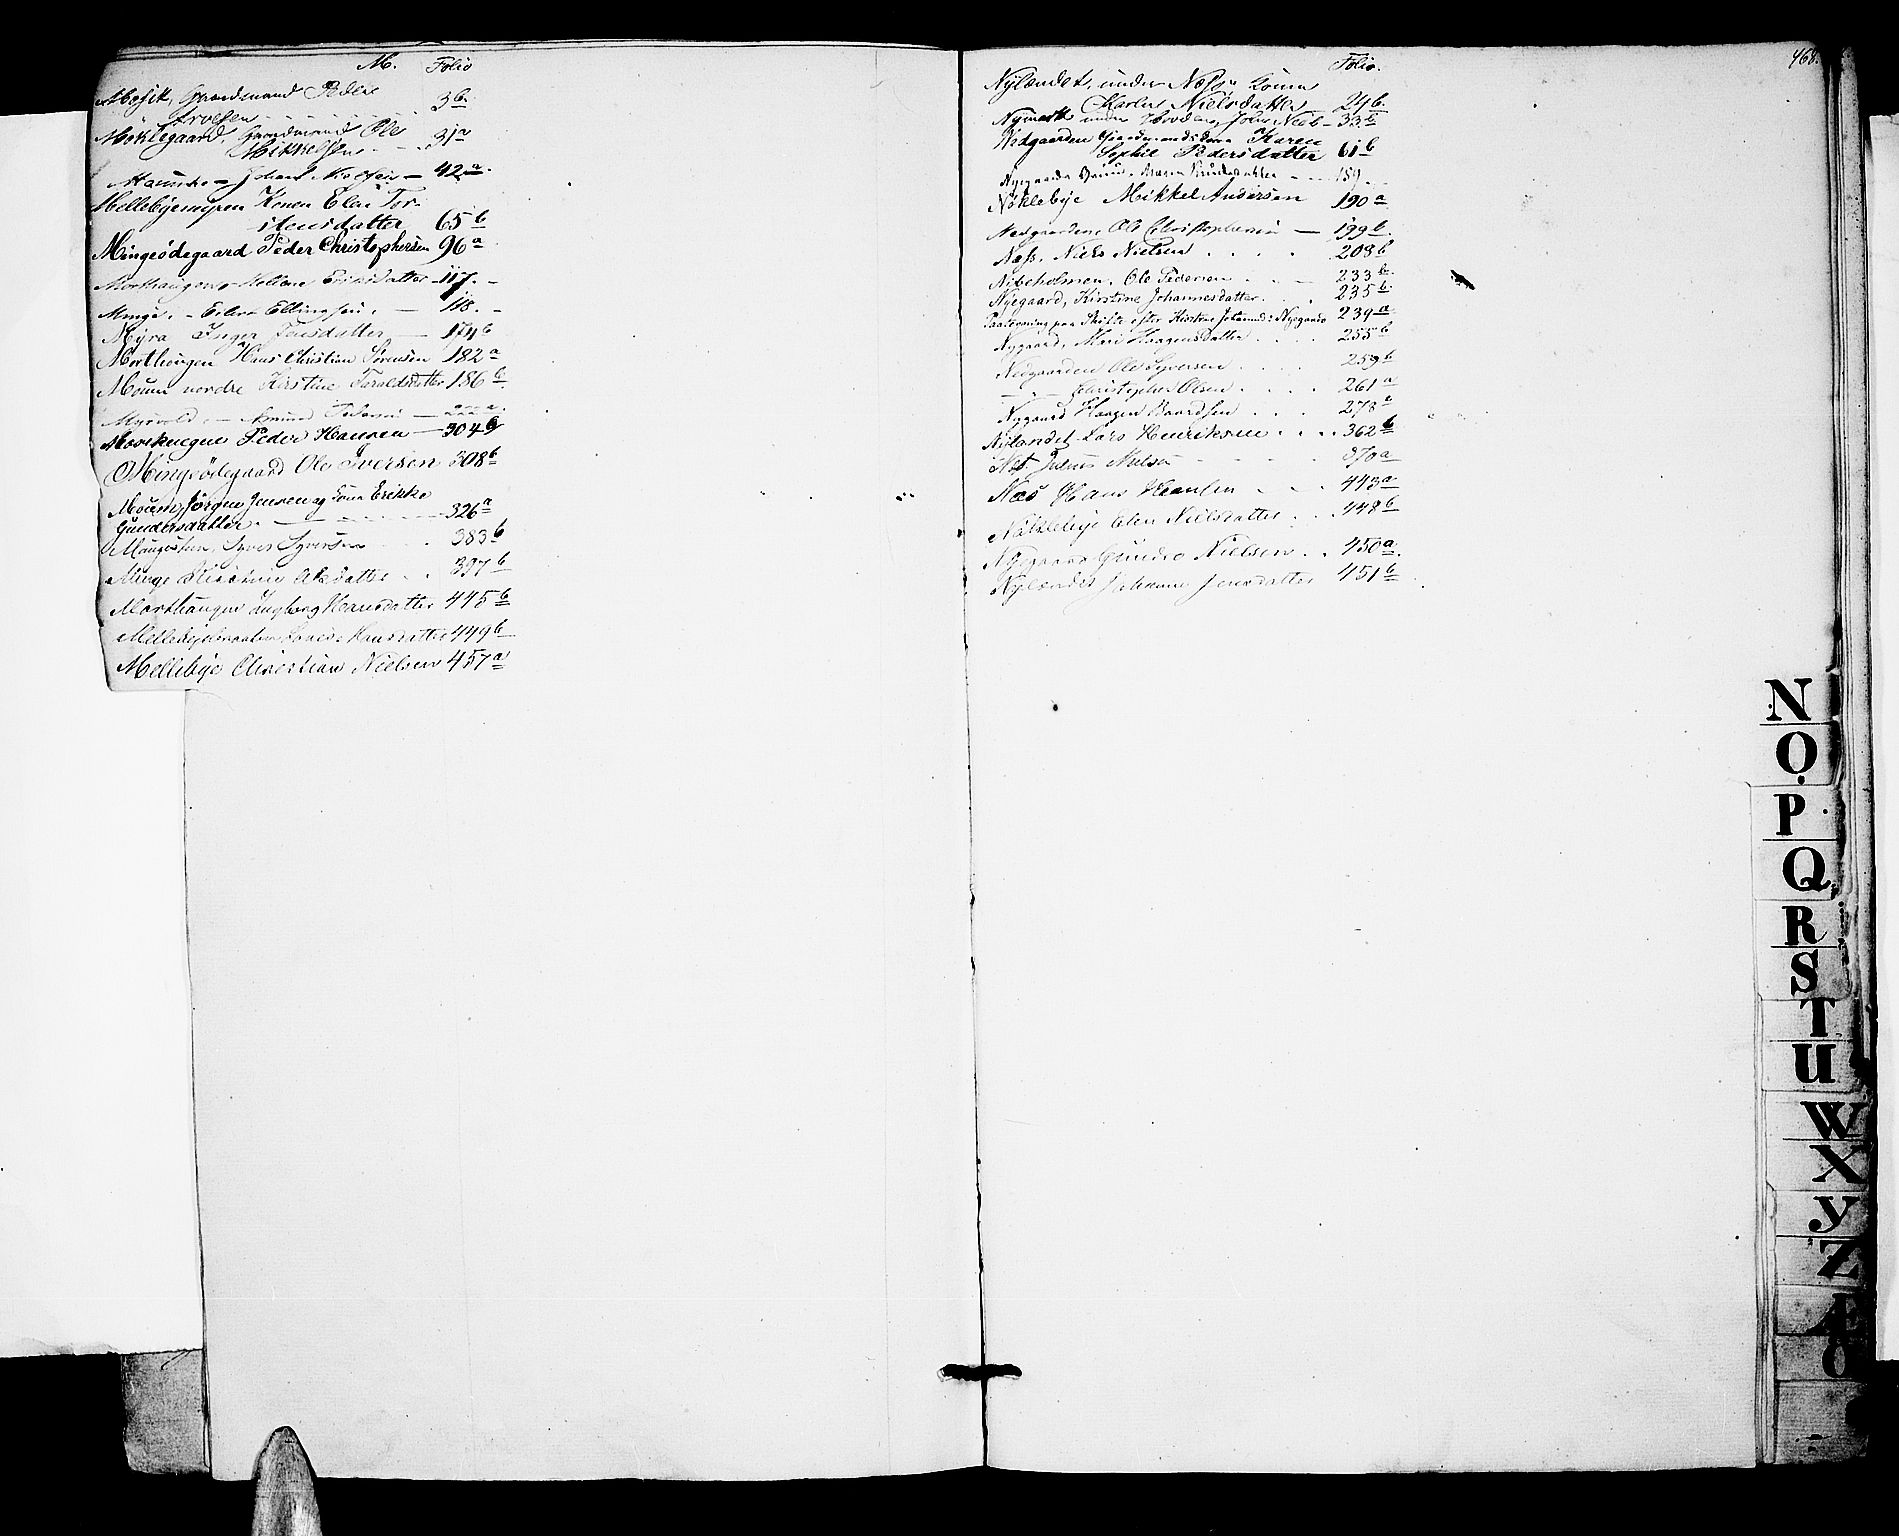 M. Folio
Gaardmand Peder
Arvesen 3b
Möklegaard, Gaardmand Ole
Mikkelsen 31a
Johan Nielsen - 42a
Mellebyemyren Konen Elen Tor-
stensdatter 65b
Mingeödegaard Peder Christophersen 96a
Morthaugen - Helene Eriksdatter 117.
Minge - Ellingsen - 118.
Myra Inger Jensdatter - 174b
Morthougen Hans Christian Sörensen 182a
Moum nordre Kirstine Toraldsdatter 186b
Myrvold - Amund Pedersen - 222a
Peder Hansen - 304b
Mingeödegaard Ole Iversen 308b
Moum, Jörgen Jensen og Kone Erikke
Gundersdatter. 326a
Syver Syversen 383b
Minge Olsdatter 397b
Morthaugen Ingborg Hansdatter 445b
Hansdatter 449b
Mellebye Christian Nielsen 457a
Folio. 468.
Nylændet, under Næs, Konen
Maren Nielsdatter - 24b
under John Neeb - 33b
Nedgaarden Gaardmandskone Karen
Sophie Pedersdatter 61b
159
Nöklebye Mikkel Andersen 190a
Nedgaarden Ole Christophersen - 199b
Næss, Niels Nielsen 208b
Nibeholmen, Ole Pedersen 233b
Nyegaard, Kirstine Johannesdatter 235b
Paategning paa Skifte efter Kirstine Johannesd: Nyegaard 239a
Nygaard, Mari Haagensdatter 255b
Nedgaarden Ole Syversen 259b
- " - Christopher Olsen 261a
Nygaard Haagen Baardsen 278a
Nylandet Lars Henriksen 362b
Næs. Julius Nielsen 370a
Næs Hans Hansen 443a
Nöklebye Elen Nielsdatter 448b
Nyegaard Gundro Nielsen 450a
Nylændet Johanne Jensdatter 451b
N
O
P
Q
R
S
T
U
W
X
Y
Z
Æ
Ö